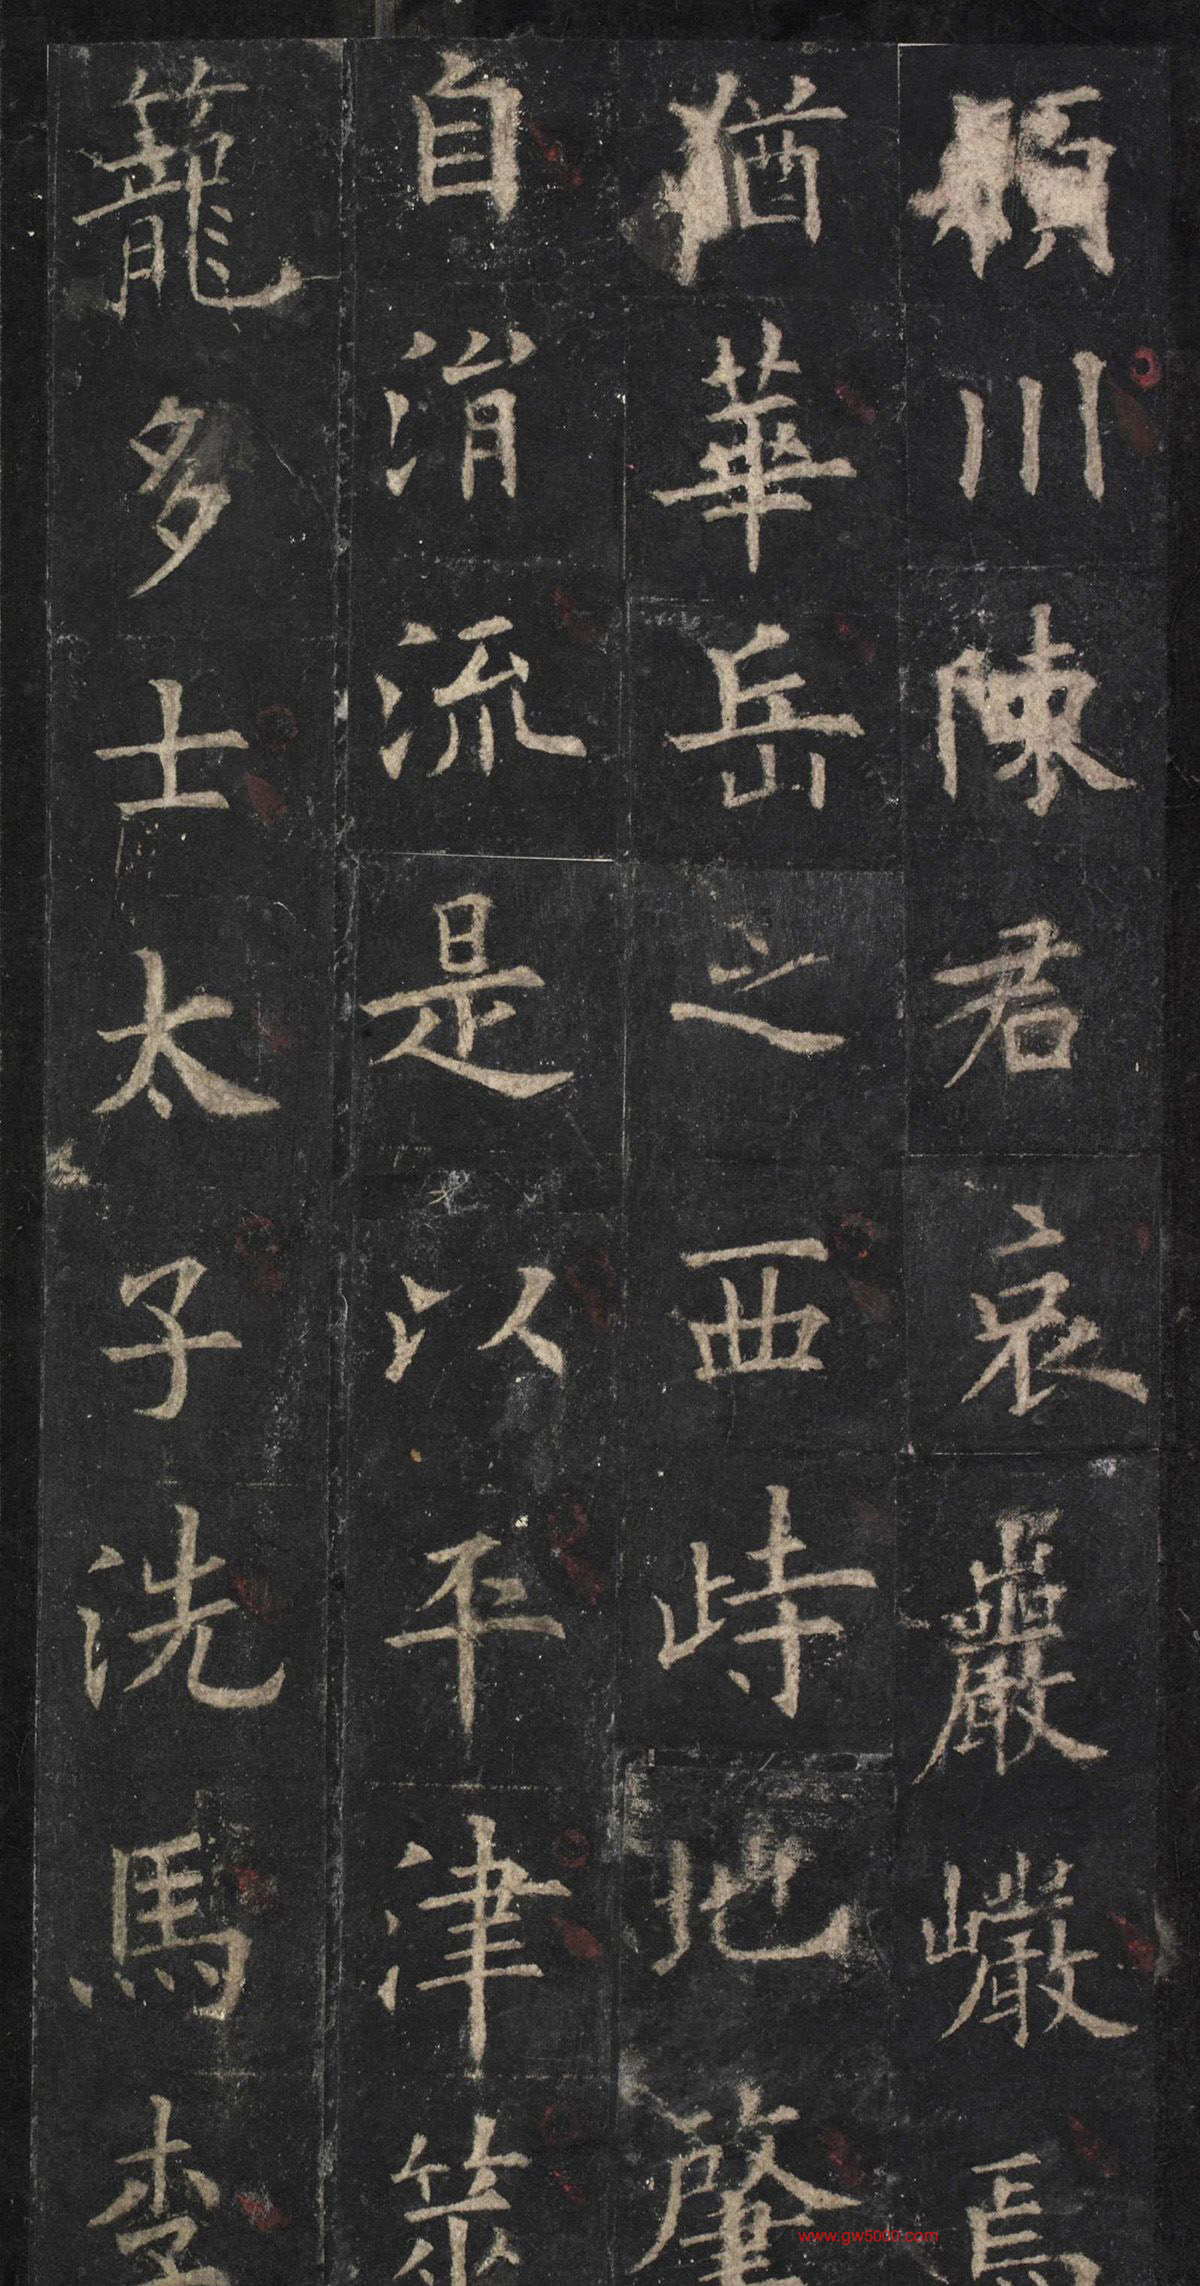 川陳君哀巖巖焉
猶華岳之西峙地肇
自涓流是以平津策
籠多士太子洗馬李
www.gw5000.com